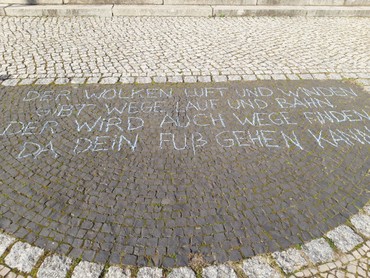 DER WOLKEN LUFT UND WINDEN
GIBT WEGE LAUF UND BAHN
DER WIRD AUCH WEGE FINDEN
DA DEIN FUß GEHEN KANN